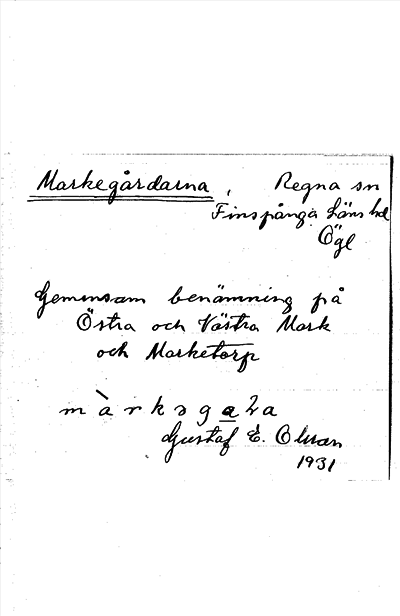 Markegårdarna, Regna sn
Finspånga Läns hd
Ögl
Gemensam benämning på
Östra och Västra Mark
och Marketorp
Gustaf E. Olsson
1931